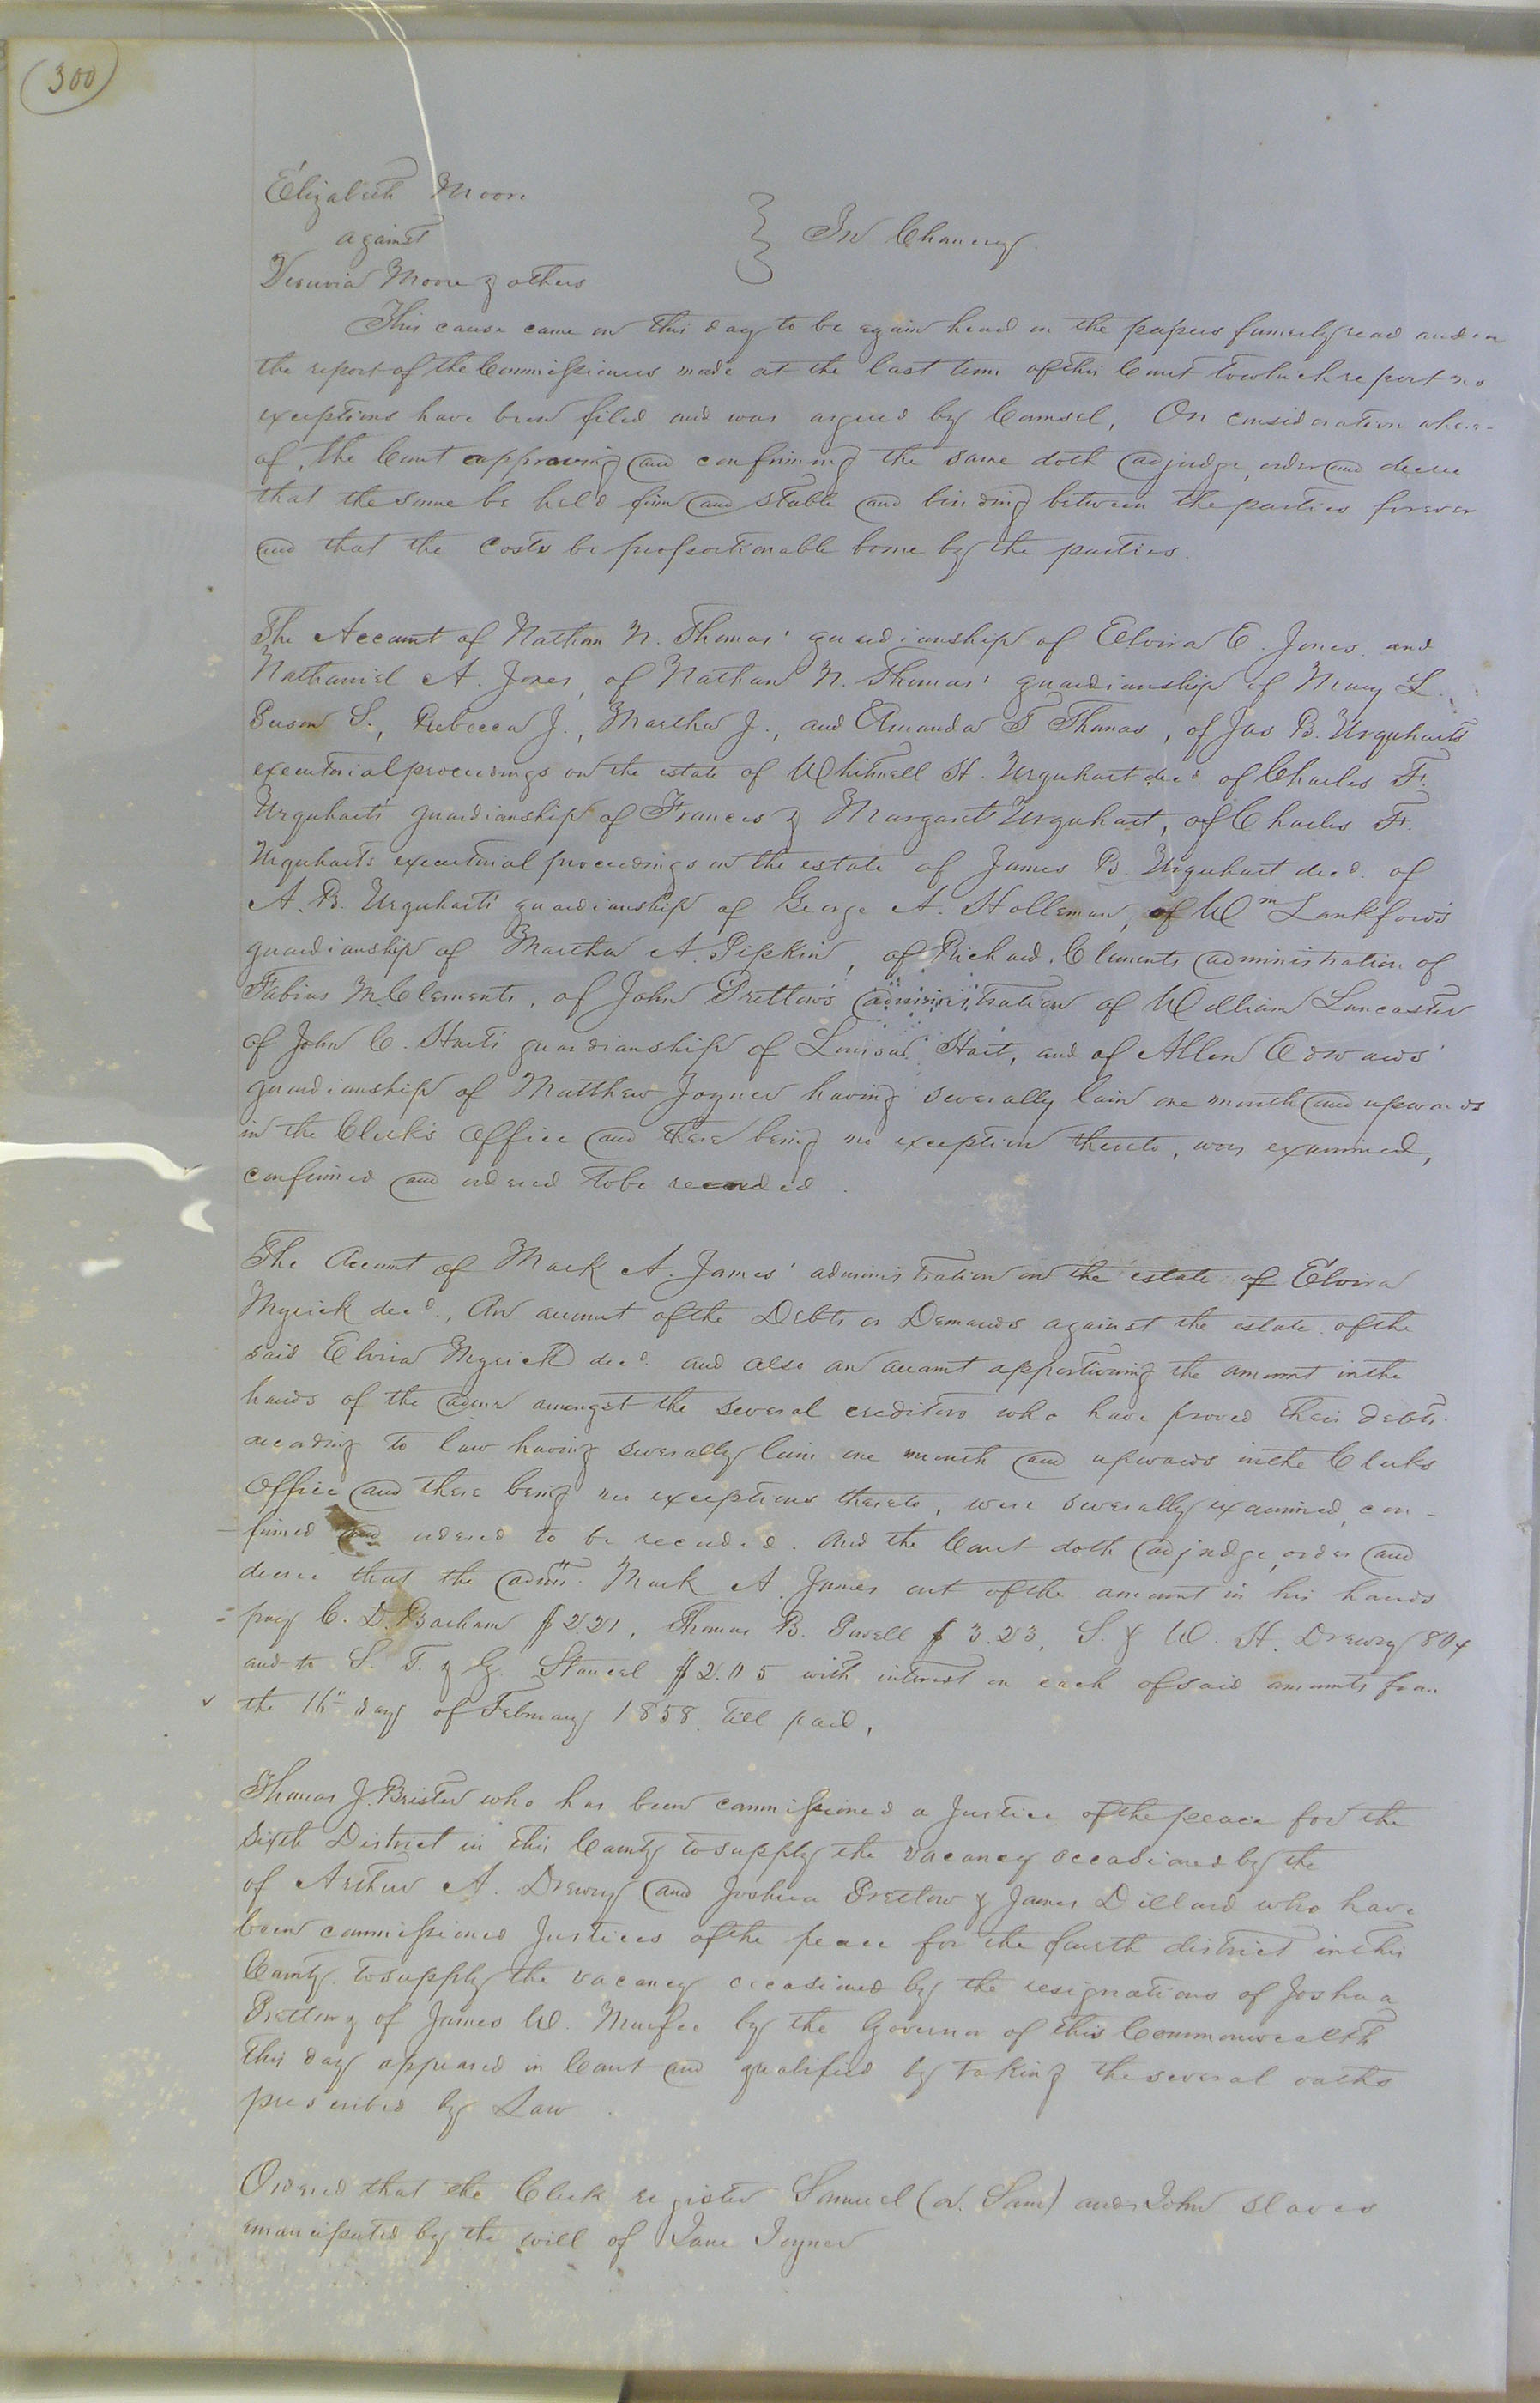 300
Elizabeth Moore
against } In Chancery.
Vesuvia Moore & others
This cause came on this day to be again heard on the papers formerly read and on
the report of the Commissioners made at the last term of this Court to which report no
exceptions have been filed and was argued by Counsel, On consideration where-
of, the Court approving and confirming the same doth adjudge, order and decree
that the same be held firm and stable and binding between the parties forever
and that the costs be proportionable borne by the parties.
The Account of Nathan N. Thomas' guardianship of Elvira E. Jones and
Nathaniel A. Jones, of Nathan N. Thomas' guardianship of Mary L.,
Susan S., Rebecca J., Martha J., and Amanda T Thomas, of Jas B. Urquharts
executorial proceedings on the estate of Whitnell H. Urquhart decd. of Charles F.
Urquharts guardianship of Frances & Margaret Urquhart, of Charles F.
Urquharts executorial proceedings on the estate of James B. Urquhart decd. of
A. B. Urquharts guardianship of George A. Holleman, of Wm Lankford's
guardianship of Martha A. Pipkin, of Richard Clements administration of
Fabius M. Clements, of John Pretlow's administration of William Lancaster
of John C. Harts guardianship of Louisa Hart, and of Allen Edwards'
guardianship of Matthew Joyner having severally lain one month and upwards
in the Clerk's Office and there being no exception thereto, was examined,
confirmed and ordered to be recorded.
The Account of Mark A. James' administration on the estate of Elvira
Myrick decd., An account of the Debts or Demands against the estate of the
said Elvira Myrick decd. and also an account apportioning the amount in the
hands of the admr amongst the several creditors who have proved their debts
according to law having severally lain one month and upwards in the Clerks
Office and there being no exceptions thereto, were severally examined, con-
firmed and ordered to be recorded. And the Court doth adjudge, order and
decree that the admr. Mark A. James out of the amount in his hands
pay C. D. Barham $2.21, Thomas B. Powell $3.23, S. & W. H. Drewry 80¢
and to S. T. & G. Stancel $2.05 with interest on each of said amounts from
the 16th day of February 1858 till paid,
Thomas J. Brister who has been commissioned a Justice of the peace for the
Sixth District in this County to supply the vacancy occasioned by the
of Arthur A. Drewry and Joshua Pretlow & James Dillard who have
been commissioned Justices of the peace for the fourth district in this
County to supply the vacancy occasioned by the resignations of Joshua
Pretlow & of James W. Murfee by the Governor of this Commonwealth
this day appeared in Court and qualified by taking the several oaths
prescribed by Law.
Ordered that the Clerk register Samuel (or Sam) and John slaves
emancipated by the will of Jane Joyner